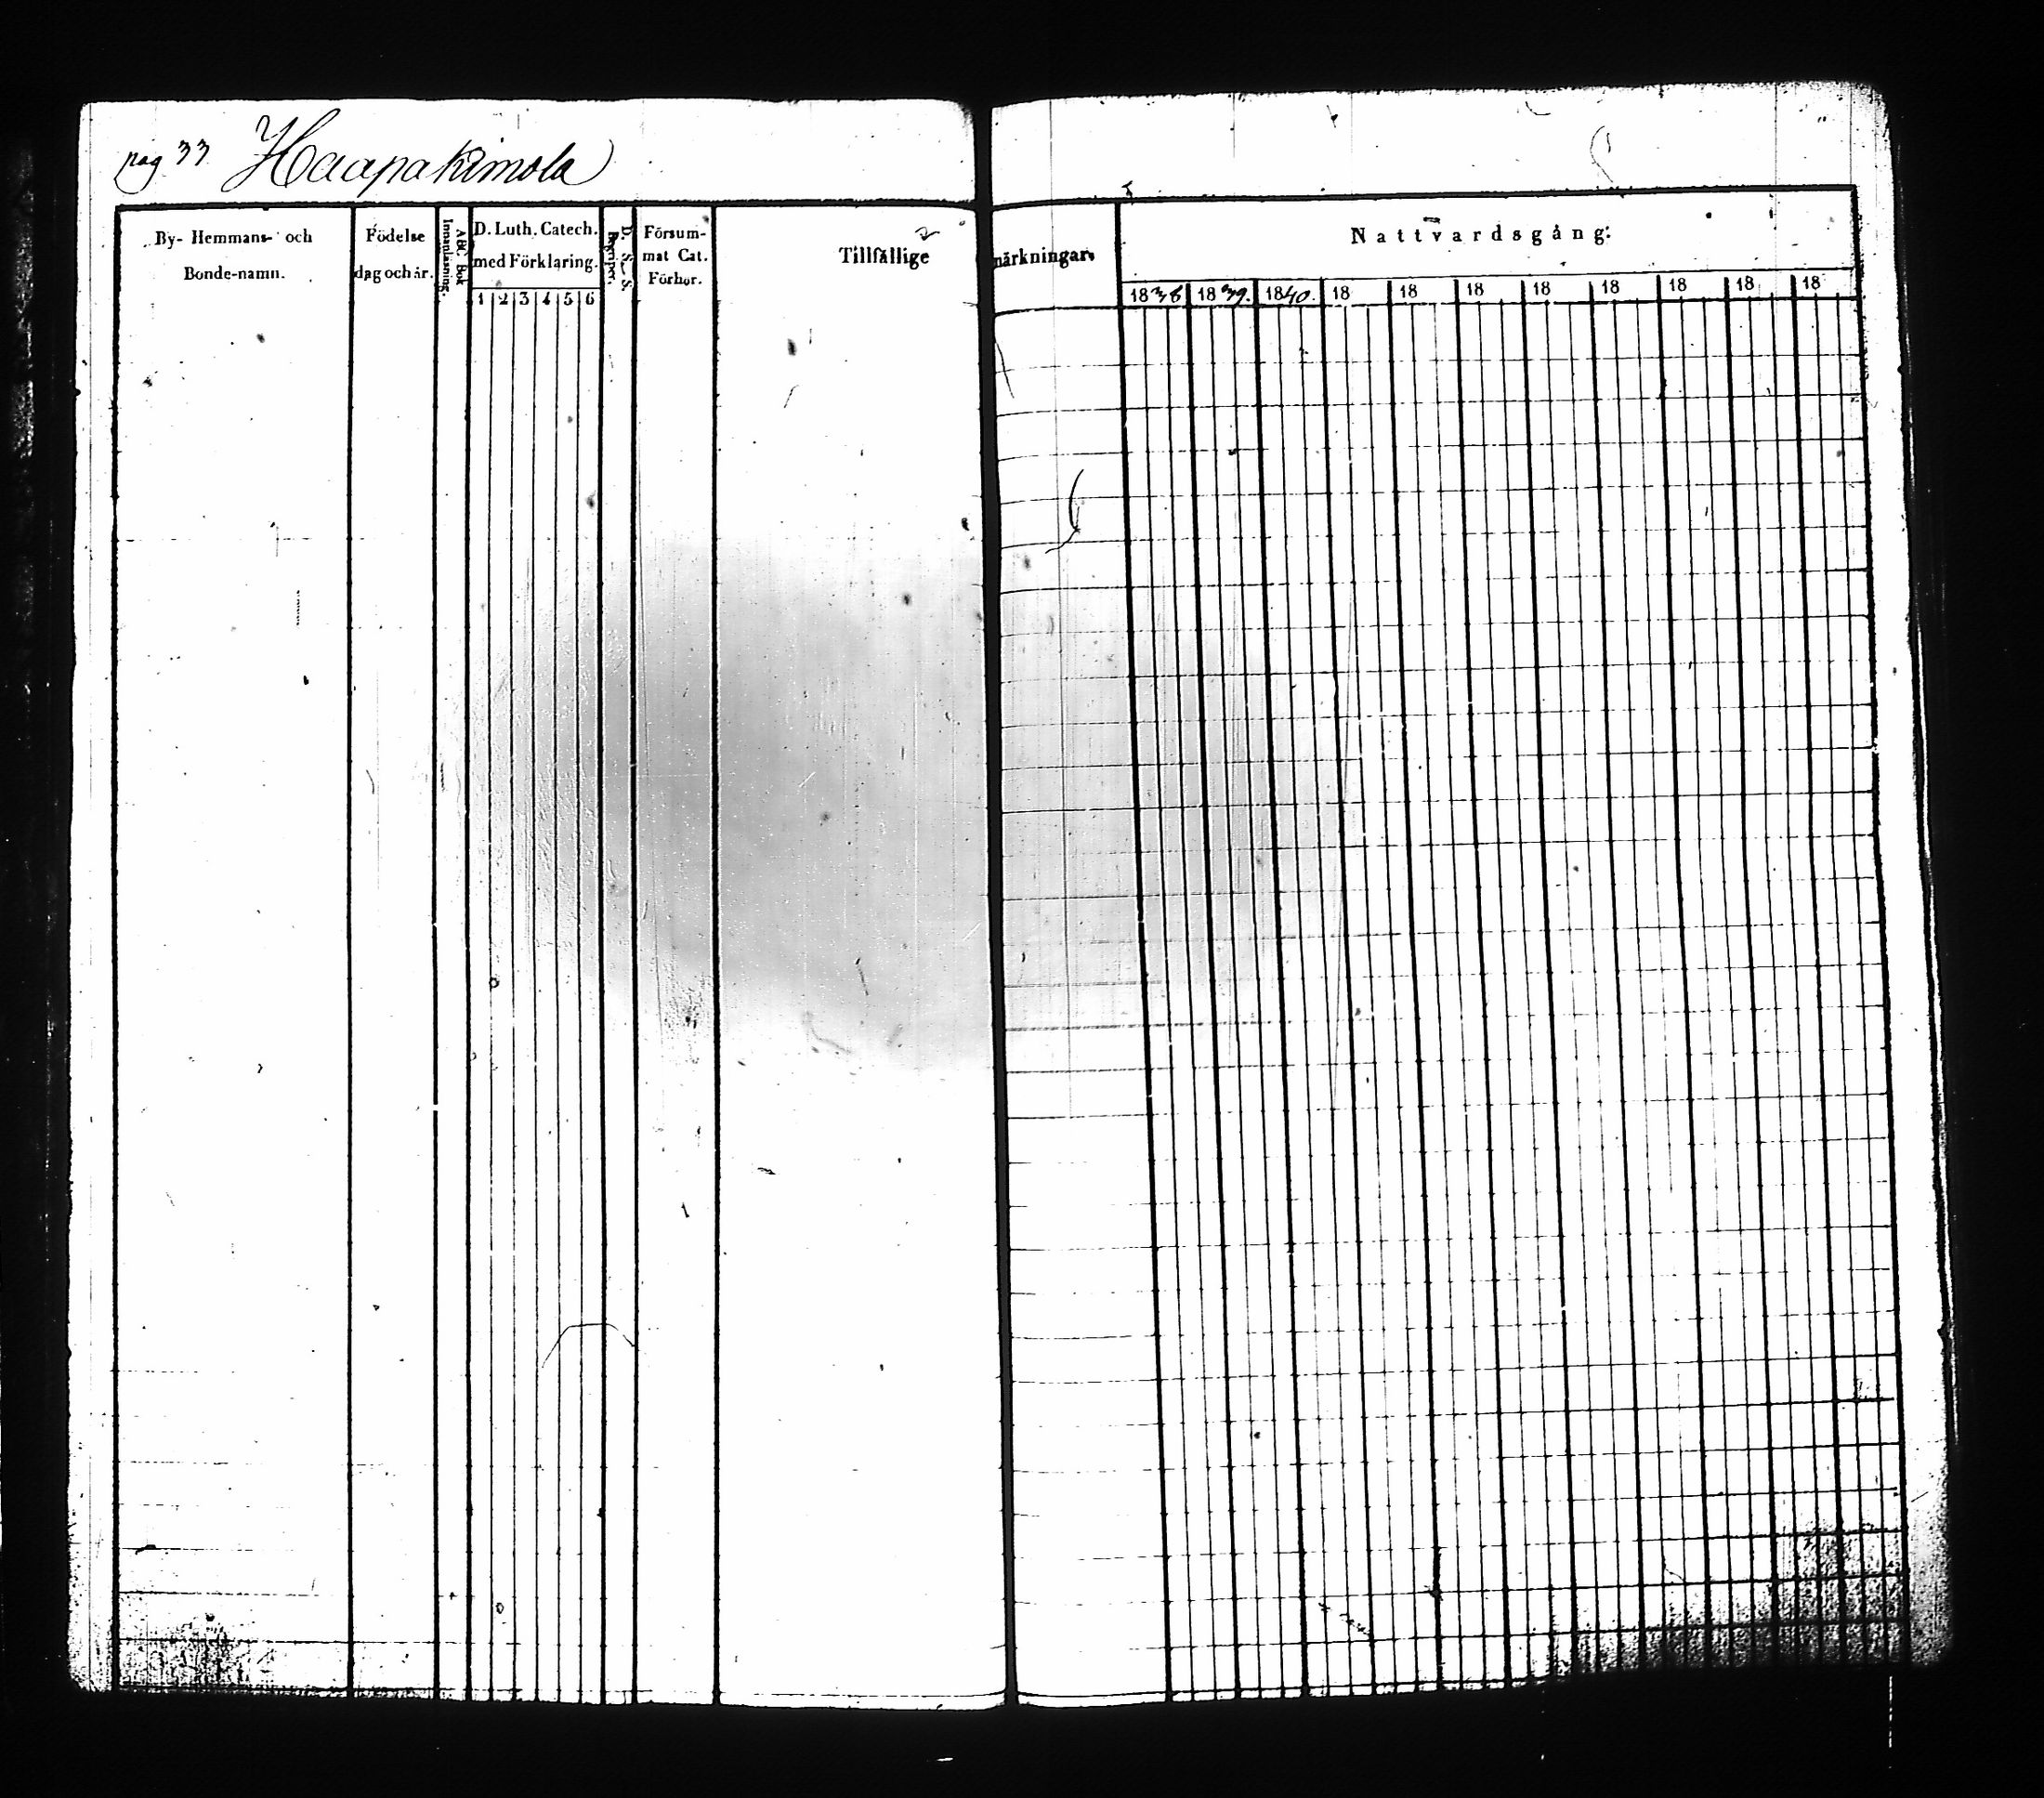 pag 33 Haapakimola
By- Hemmans- och
Bonde-namn.
Födelse
dag och år.
ABC Bok
Innanläsning.
D. Luth. Catech.
med Förklaring.
1 2 3 4 5 6
D. S. S.
Begriper.
Försum-
mat Cat.
Förhör.
Tillfällige
märkningar.
Nattvardsgång:
1838 1839. 1840. 18 18 18 18 18 18 18 18